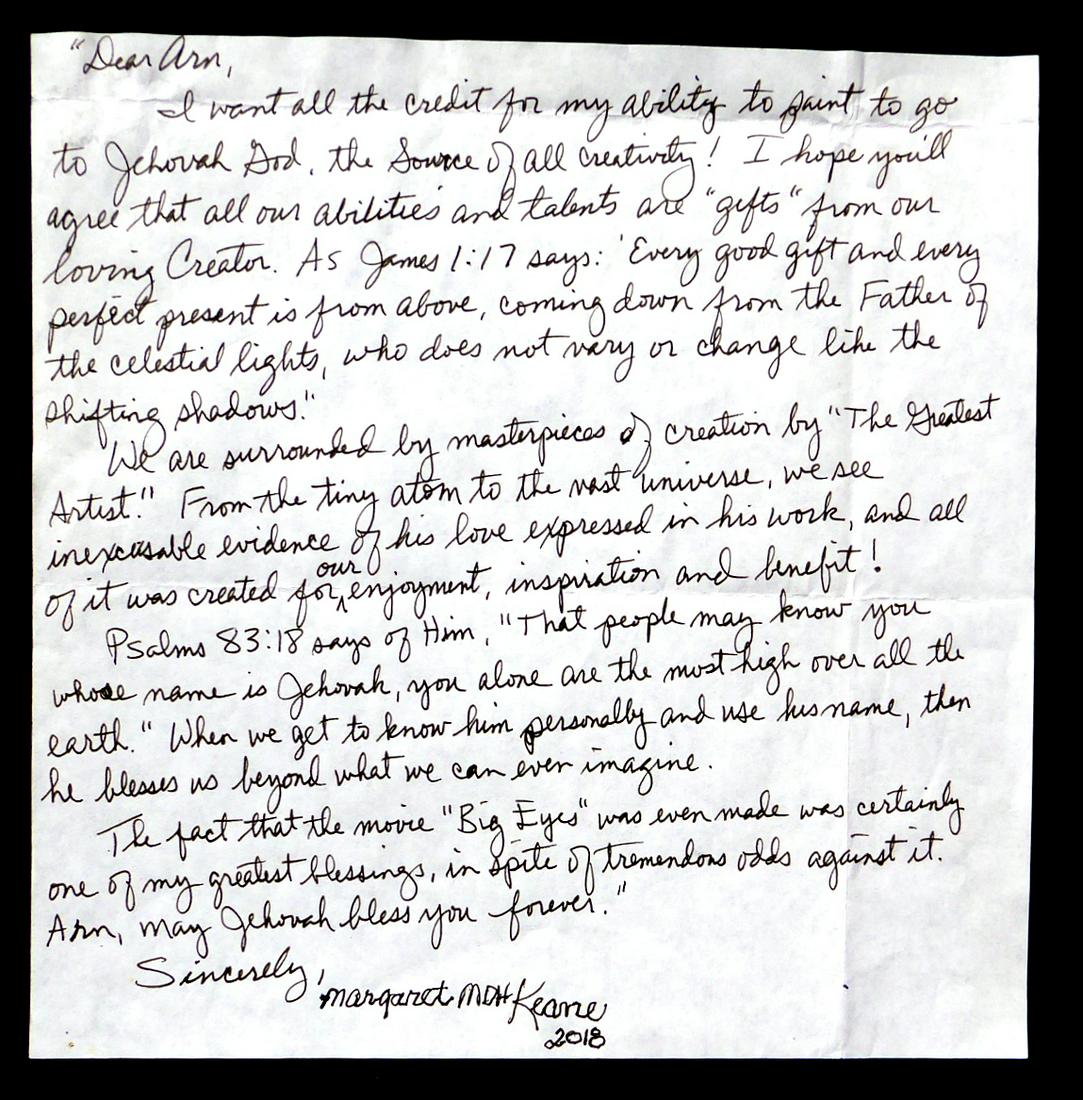 "Dear Arn,
I want all the credit for my ability to paint to go
to Jehovah God, the Source of all creativity! I hope you'll
agree that all our abilities and talents are "gifts" from our
loving Creator. As James 1:17 says: 'Every good gift and every
perfect present is from above, coming down from the Father of
the celestial lights, who does not vary or change like the
shifting shadows."
We are surrounded by masterpieces of creation by "The Greatest
Artist." From the tiny atom to the vast universe, we see
inexcusable evidence of his love expressed in his work, and all
of it was created for our enjoyment, inspiration and benefit!
Psalms 83:18 says of Him, "That people may know you
whose name is Jehovah, you alone are the most high over all the
earth." When we get to know him personally and use his name, then
he blesses us beyond what we can even imagine.
The fact that the movie "Big Eyes" was even made was certainly
one of my greatest blessings, in spite of tremendous odds against it.
Arn, may Jehovah bless you forever."
Sincerely,
Margaret MDH Keane
2018